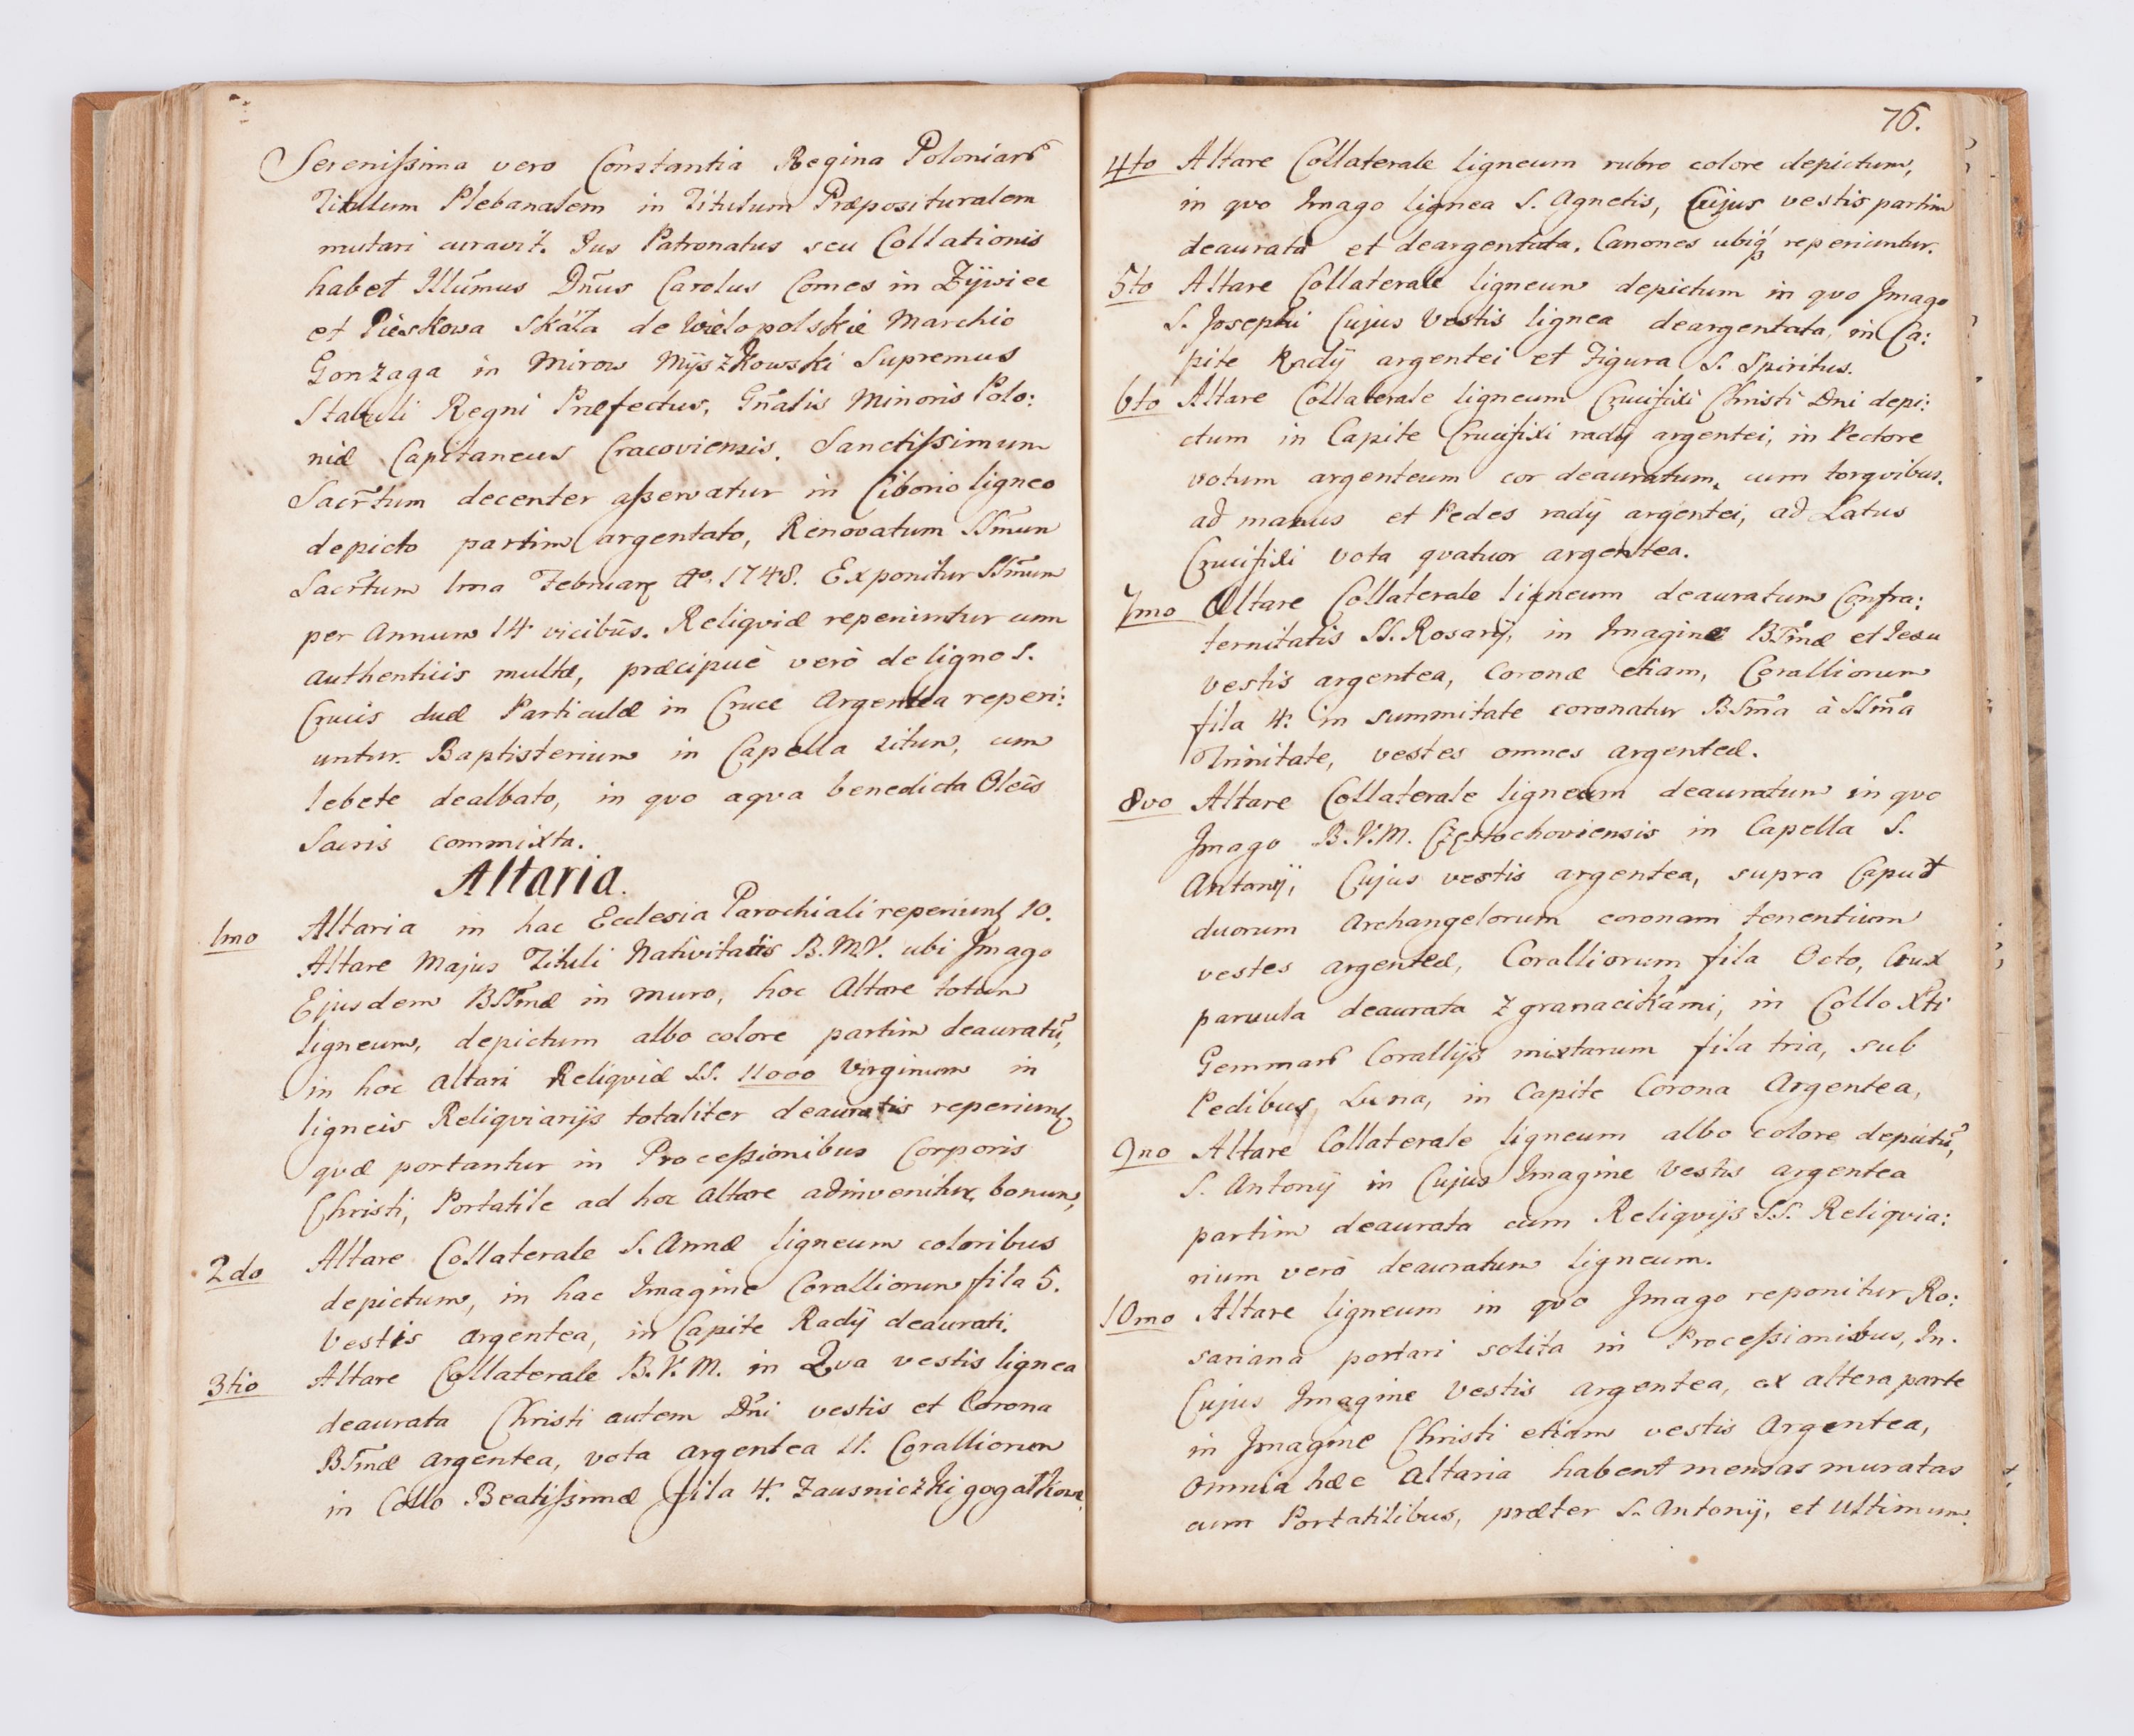 Sereniſsima vero Constantia Regina Poloniarũ
Titulum Plebanalem in Titulum Præposituralem
mutari curavit. Jus Patronatus seu Collationis
habet Illũmus Dñus Carolus Comes in Żÿwiec
et Pieskowa Skáła de Wielopolskie Marchio
Gonzaga in Mirow Mÿszkowski Supremus
Stabuli Regni Præfectus, Gñalis Minoris Polo:
niæ Capitaneus Cracoviensis. Sanctiſsimum
Sacr̃tum decenter aſservatur in Ciborio ligneo
depicto partim argentato, Renovatum SSm̃um
Sacr̃tum 1ma Februarÿ Aº. 1748. Exponitur SSm̃um
per Annum 14 vicibũs. Reliqviæ reperiuntur cum
authenticis multæ, præcipuè verò de ligno S.
Crucis duæ Particulæ in Cruce Argentea reperi:
untur. Baptisterium in Capella situm, cum
lebete dealbato, in qvo aqva benedicta Oleis
Sacris commixta.
Altaria.
1mo Altaria in hac Ecclesia Parochiali reperiunt 10.
Altare Majus Tituli Nativitatis B.M.V. ubi Jmago
Ejusdem BSSm̃æ in muro, hoc Altare totum
ligneum, depictum albo colore partim deauratũ,
in hoc Altari Reliqviæ SS. 11000 Virginum in
ligneis Reliqviarÿs totaliter deauratis reperiunt
qvæ portantur in Proceſsionibus Corporis
Christi, Portatile ad hoc Altare adinvenitur bonum,
2do Altare Collaterale S. Annæ ligneum coloribus
depictum, in hac Imagine Coralliorum fila 5.
Vestis argentea, in Capite Radÿ deaurati.
3tio Altare Collaterale B.V.M. in Qva vestis lignea
deaurata Christi autem Dñi vestis et Corona
BSm̃æ argentea, vota argentea 11. Coralliorum
in Collo Beatiſsimæ fila 4. Zausniczki gogatkowe,
76.
4to Altare Collaterale ligneum rubro colore depictum,
in qvo Imago lignea S. Agnetis, Cujus vestis partim
deaurata et deargentata. Canones ubiq́ reperiuntur.
5to Altare Collaterale ligneum depictum in qvo Jmago
S. Josephi Cujus Vestis lignea deargentata, in Ca:
pite Radÿ argentei et Figura S. Spiritus.
6to Altare Collaterale ligneum Crucifixi Christi Dni depi:
ctum in Capite Crucifixi radÿ argentei, in Pectore
votum argenteum cor deauratum, cum torqvibus.
ad manus et Pedes radÿ argentei, ad Latus
Crucifixi vota qvatuor argentea.
7mo Altare Collaterale ligneum deauratum Confra:
ternitatis SS. Rosarÿ, in Imagine BSm̃æ et Jesu
vestis argentea, Coronæ etiam, Coralliorum
fila 4. in summitate coronatur BSm̃a à SSm̃a
Trinitate, vestes omnes argenteæ.
8vo Altare Collaterale ligneum deauratum in qvo
Jmago B.V.M. Częstochoviensis in Capella S.
Antonÿ, Cujus vestis argentea, supra Caput
duorum Archangelorum coronam tenentium
vestes argenteæ, Coralliorum fila Octo, Crux
parvula deaurata z granacikami, in Collo Xti
Gemmarũ Corallÿs mixtarum fila tria, sub
Pedibus Luna, in Capite Corona Argentea,
9no Altare Collaterale ligneum albo colore depictũ,
S. Antonÿ in Cujus Imagine Vestis argentea
partim deaurata cum Reliqvÿs SS. Reliqvia:
rium verò deauratum ligneum.
10mo Altare ligneum in qvo Jmago reponitur Ro:
sariana portari solita in Proceſsionibus, In
Cujus Imagine Vestis argentea, ex altera parte
in Jmagine Christi etiam vestis Argentea,
Omnia hæc Altaria habent mensas muratas
cum Portatilibus, præter S. Antonÿ, et Ultimum.